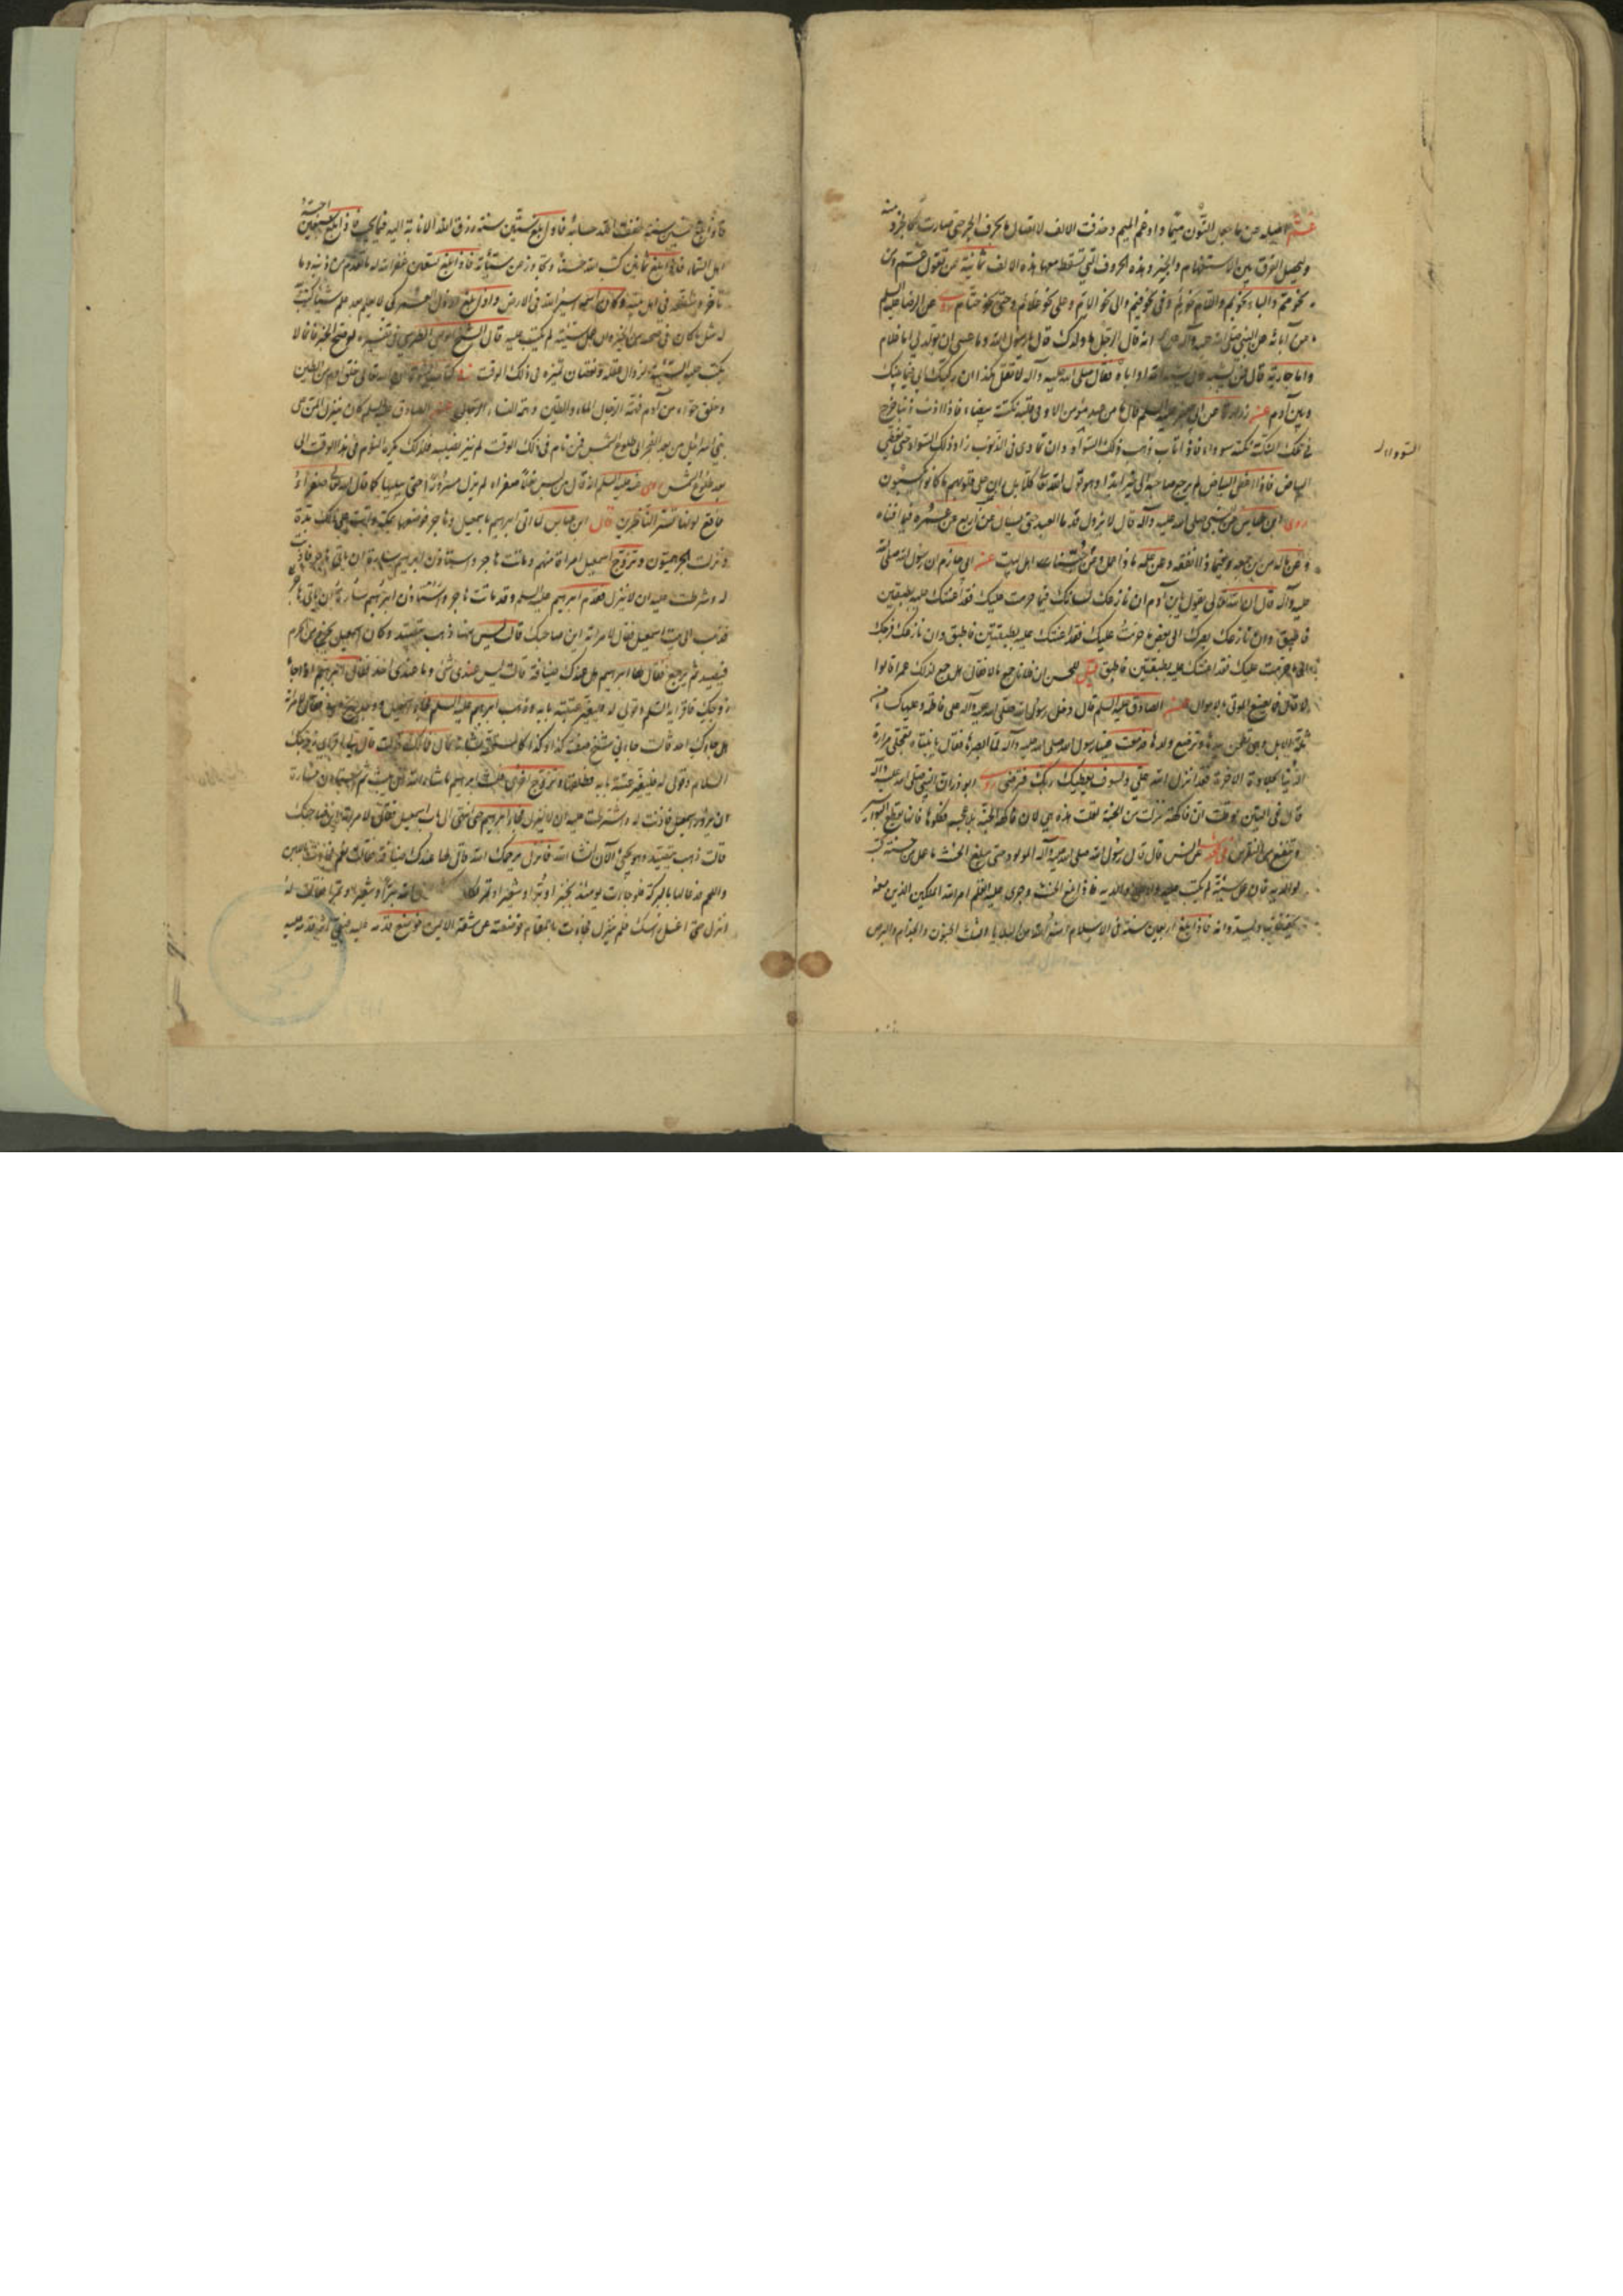 عمّ اصله عن ما جعل النّون ميما وادغم الميم وحذفت الالف لاتصال ما بحرف الجر حتى صارت كالجزء منه
وليحصل الفرق بين الاستفهام والخبر وهذه الحروف التي تسقط معها هذه الالف ثمانية عن تقول عم ومن
نحو مم والباء نحو بم واللام نحو لم وفي نحو فيم والى نحو الام وعلى نحو علام وحتى نحو حتام روى عن الرضا عليه السلم
عن آبائه عن النبي صلى الله عليه وآله انه قال لرجل ما ولد لك قال يا رسول الله وما عسى ان يولد لي اما غلام
واما جارية قال فمن يشبه قال يشبه امه او اباه فقال صلى الله عليه وآله لا تقل هكذا ان
وبين آدم عن زرارة عن ابي جعفر عليه السلم قال ما من عبد مؤمن الا وفي قلبه نكتة بيضاء فاذا اذنب ذنبا خرج
في تلك النكتة نكتة سوداء فاذا تاب ذهب ذلك السواد وان تمادى في الذنوب زاد ذلك السواد حتى يغطي
البياض فاذا غطى البياض لم يرجع صاحبه الى خير ابدا وهو قول الله تعالى كلا بل ران على قلوبهم ما كانوا يكسبون
روى ابن عباس عن النبي صلى الله عليه وآله قال لا يزول قدما العبد حتى يسأل عن اربع عن عمره فيما افناه
وعن ماله من اين جمعه وفيما ذا انفقه وعن عمله ما ذا عمل وعن حبنا اهل البيت عن ابي حازم ان رسول الله صلى الله
عليه وآله قال ان الله تعالى يقول يا بن آدم ان نازعك لسانك فيما حرمت عليك فقد اعنتك عليه بطبقتين
فاطبق وان نازعك بصرك الى بعض ما حرمت عليك فقد اعنتك عليه بطبقتين فاطبق وان نازعك فرجك
الى ما حرمت عليك فقد اعنتك عليه بطبقتين فاطبق قيل للحسن ان فلانا جمع مالا فقال هل جمع لذلك عمرا قالوا
لا قال فما يصنع الموتى بالاموال عن الصادق عليه السلم قال دخل رسول الله صلى الله عليه وآله على فاطمة وعليها كساء من
ثلة الابل وهي تطحن بيدها وترضع ولدها فدمعت عينا رسول الله صلى الله عليه وآله لما ابصرها فقال يا بنتاه تعجلي مرارة
الدنيا بحلاوة الآخرة فقد انزل الله علي ولسوف يعطيك ربك فترضى روى ابو ذر ان النبي صلى الله عليه وآله
قال في التين لو قلت ان فاكهة نزلت من الجنة لقلت هذه هي لان فاكهة الجنة بلا عجم فكلوها فانها تقطع البواسير
وتنفع من النقرس عن انس قال قال رسول الله صلى الله عليه وآله المولود حتى يبلغ الحنث ما عمل من حسنة كتب
لوالديه فان عمل سيئة لم يكتب عليه ولا على والديه فاذا بلغ الحنث وجرى عليه القلم امر الله الملكين الذين معه
يحفظانه ويسددانه فاذا بلغ اربعين سنة في الاسلام امنه الله من البلايا الثلث الجنون والجذام والبرص
فاذا بلغ خمسين سنة خفف الله حسابه فاذا بلغ ستين سنة رزق الله الانابة اليه فيما يحب فاذا بلغ سبعين احبه
اهل السماء فاذا بلغ ثمانين كتب الله حسناته وتجاوز عن سيئاته فاذا بلغ تسعين غفر الله له ما تقدم من ذنبه وما
تاخر وشفعه في اهل بيته وكان اسمه اسير الله في الارض واذا بلغ ارذل العمر لكي لا يعلم بعد علم شيئا كتب
له مثل ما كان في صحته من الخير وان عمل سيئة لم يكتب عليه قال الشيخ ابو علي الطبرسي في تفسيره
يكتب عليه السيئة لزوال عقله ونقصان تميزه في ذلك الوقت
وخلق حواء من آدم فهمة الرجال الماء والطين وهمة النساء الرجال عن الصادق عليه السلم كان ينزل المن على
بني اسرائيل من بعد الفجر الى طلوع الشمس فمن نام في ذلك الوقت لم ينزل نصيبه فلذلك يكره النوم في هذا الوقت الى
بعد طلوع الشمس روى عنه عليه السلم انه قال من لبس نعلا صفراء لم يزل مسرورا حتى يبليها كما قال الله تعالى صفراء
فاقع لونها تسر الناظرين قال ابن عباس لما اتى ابراهيم باسمعيل وهاجر فوضعها بمكة واتت على ذلك مدة
ونزلت الجرهميون وتزوج اسمعيل امراة منهم وماتت هاجر واستاذن ابراهيم سارة ان ياتي هاجر فاذنت
له وشرطت عليه ان لا ينزل فقدم ابراهيم عليه السلم وقد ماتت هاجر
فذهب الى بيت اسمعيل فقال لامراته اين صاحبك قالت ليس ههنا ذهب يتصيد وكان اسمعيل يخرج من الحرم
فيتصيد ثم يرجع فقال لها ابراهيم هل عندك ضيافة قالت ليس عندي شيء وما عندي احد فقال ابراهيم اذا جاء
زوجك فاقرئيه السلم وقولي له فليغير عتبة بابه وذهب ابراهيم عليه السلم فجاء اسمعيل ووجد ريح ابيه فقال لامراته
هل جاءك احد قالت جاءني شيخ صفته كذا وكذا كالمستخفة بشانه قال فما قال لك قالت قال اقرئي زوجك
السلام وقولي له فليغير عتبة بابه فطلقها وتزوج اخرى فلبث ابراهيم ما شاء الله ان يلبث ثم استاذن سارة
ان يزور اسمعيل فاذنت له واشترطت عليه ان لا ينزل فجاء ابراهيم حتى انتهى الى باب اسمعيل فقال لامراته اين صاحبك
قالت ذهب يتصيد وهو يجيء الآن انشاء الله فانزل يرحمك الله قال لها هل عندك ضيافة قالت نعم فجاءت باللبن
واللحم فدعا لها بالبركة فلو جاءت يومئذ بخبز او بر او شعير او تمر لكان اكثر ارض الله برا وشعيرا وتمرا فقالت له
انزل حتى اغسل راسك فلم ينزل فجاءت بالمقام فوضعته على شقه الايمن فوضع قدمه عليه فبقي اثر قدمه عليه